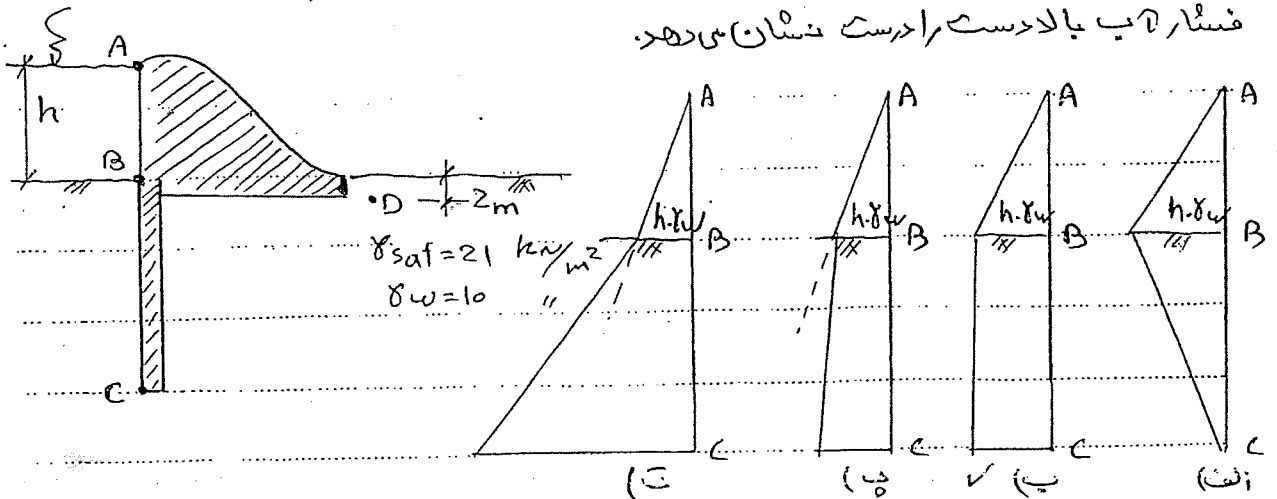 فشار آب بالادست را درست نشان می‌دهد.
A
h
B
•D
2m
γsat = 21 kN/m²
γw = 10 "
C
A
h.γw
B
C
ت)
A
h.γw
B
C
پ)
A
h.γw
B
C
ب) ✓
A
h.γw
B
C
الف)